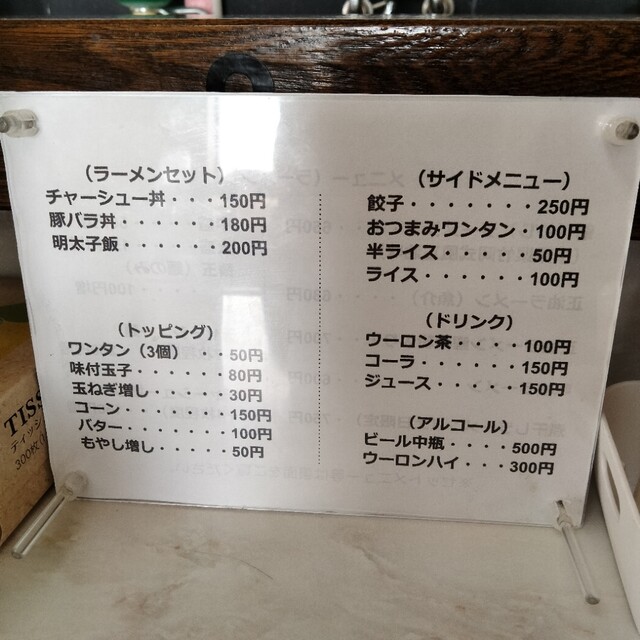 （ラーメンセット）
チャーシュー丼・・・150円
豚バラ丼・・・・・・180円
明太子飯・・・・・・200円
（トッピング）
ワンタン（3個）　・・50円
味付玉子・・・・・・80円
玉ねぎ増し・・・・・30円
コーン・・・・・・150円
バター・・・・・・100円
もやし増し・・・・・50円
（サイドメニュー）
餃子・・・・・・・250円
おつまみワンタン・100円
半ライス・・・・・50円
ライス・・・・・・100円
（ドリンク）
ウーロン茶・・・・100円
コーラ・・・・・・150円
ジュース・・・・・150円
（アルコール）
ビール中瓶・・・・500円
ウーロンハイ・・・300円
TISS
ティッシ